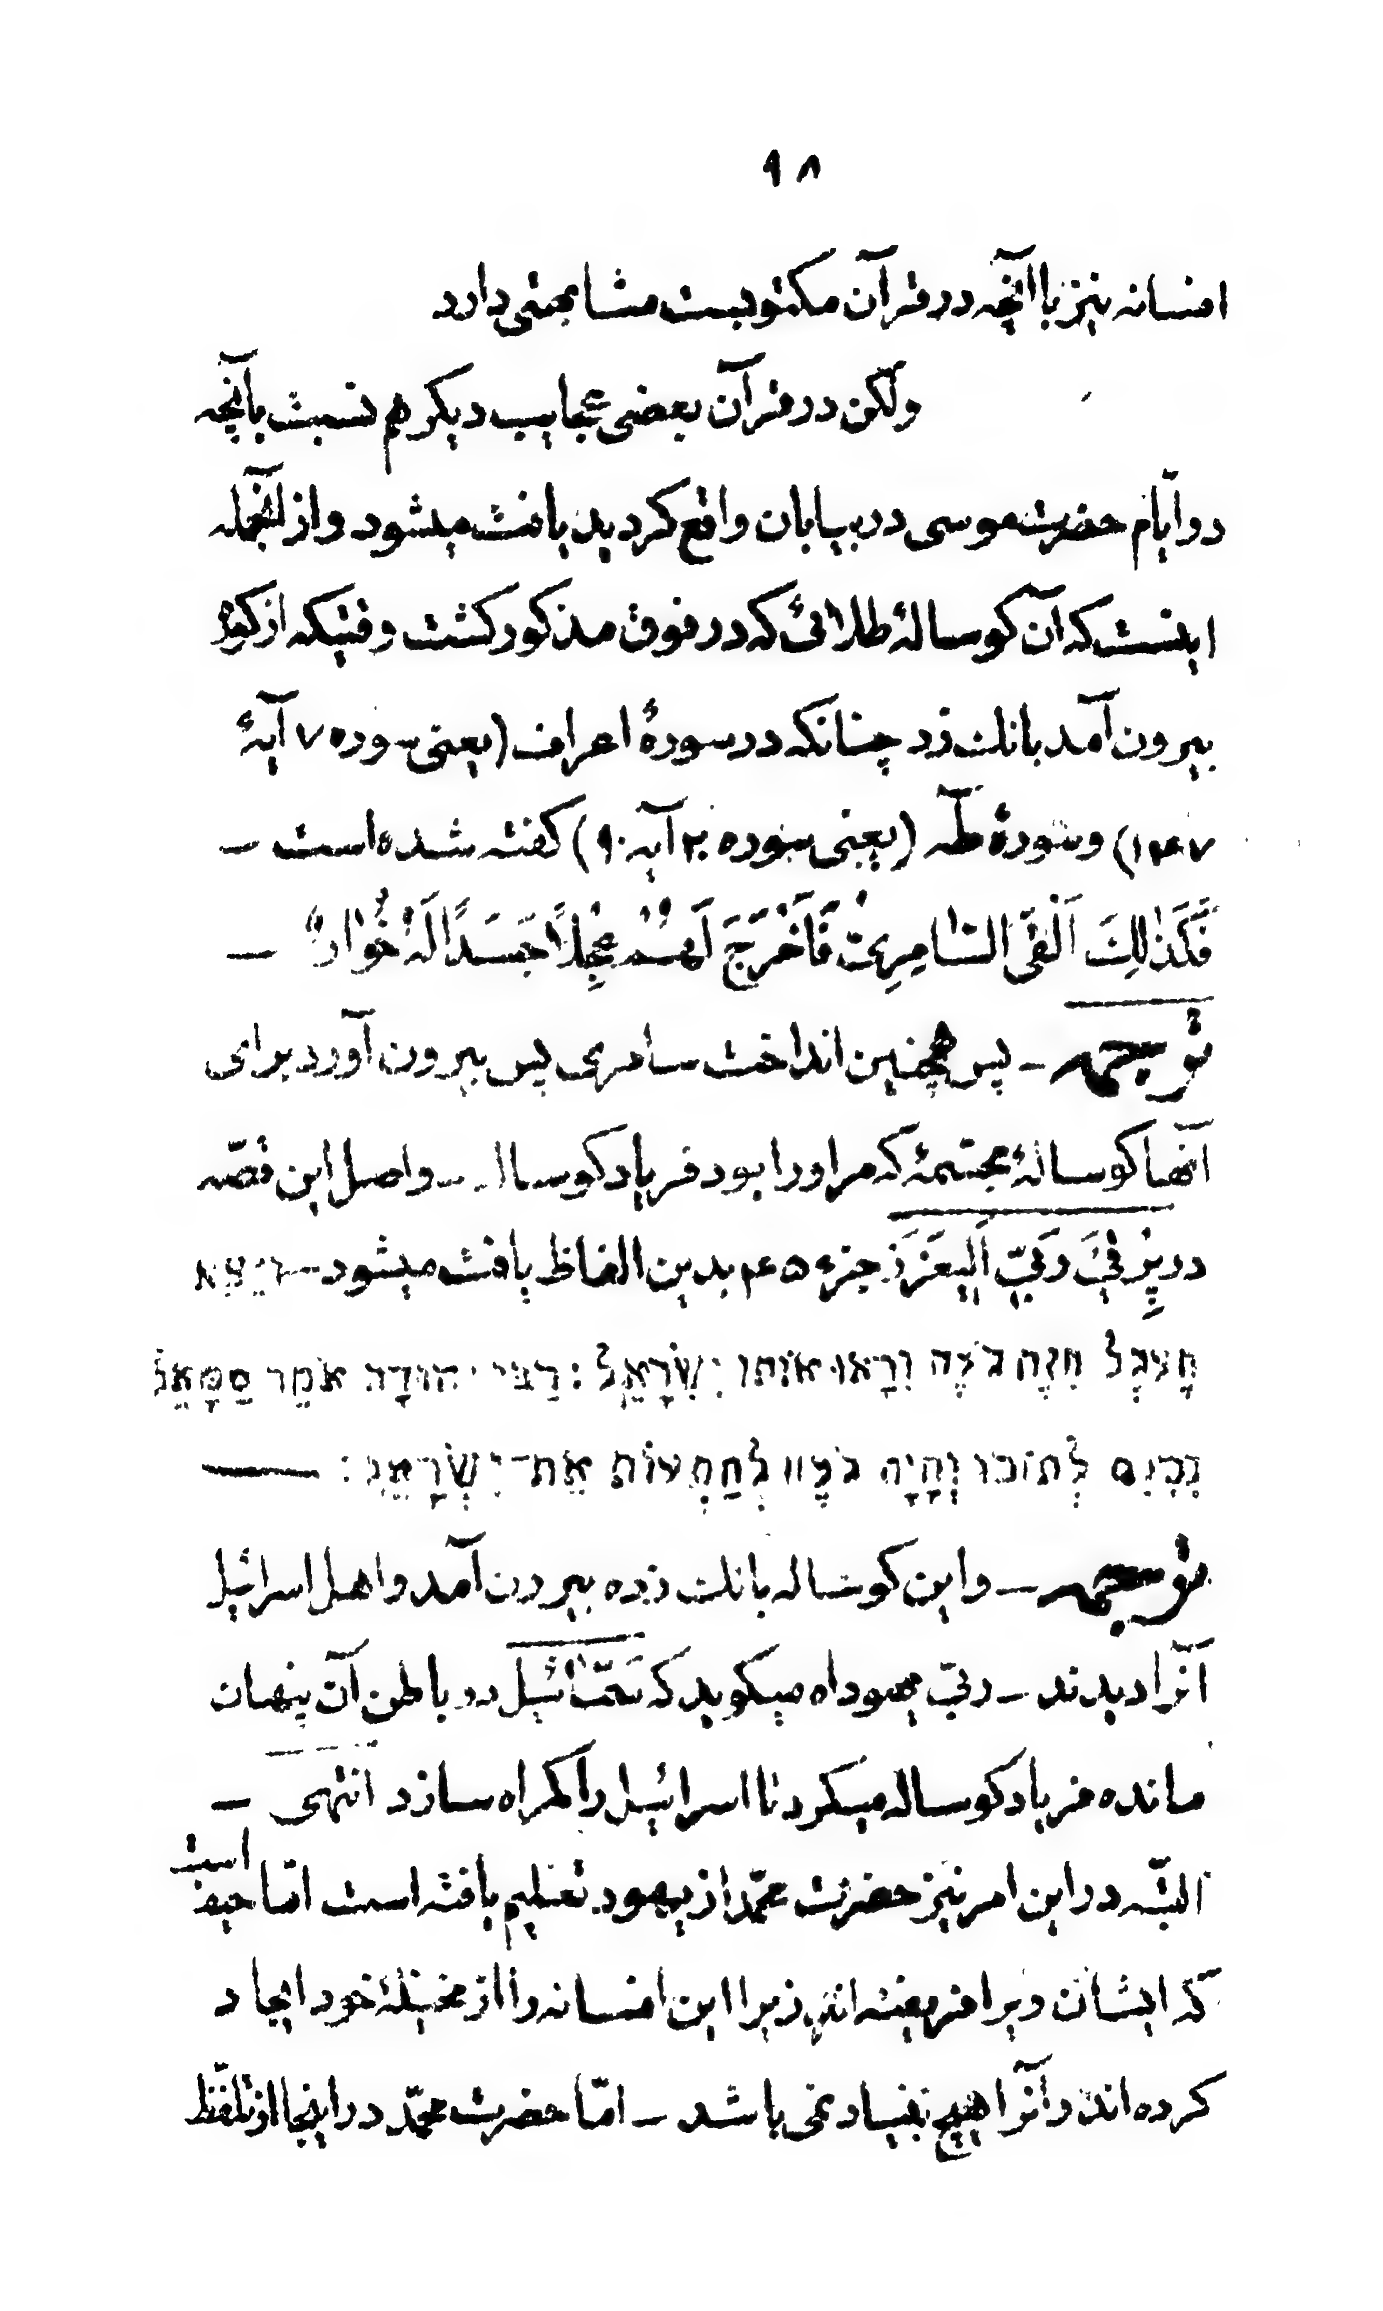 ۹۸
افسانه نیز با آنچه در قرآن مکتوبست مشابهتی دارد
ولکن در قرآن بعضی عجایب دیکر هم نسبت بآنچه
در ایّام حضرت موسی در بیابان واقع کردید یافت میشود و از آنجمله
اینست که آن کوسالهٔ طلائی که در فوق مذکور کشت وقتیکه از کورهٔ
بیرون آمد بانک زد چنانکه در سورهٔ اعراف (یعنی سوره ۷ آیهٔ
۱۴۷) و سورهٔ طٓه (یعنی سوره ۲۰ آیه ۹۰) کفته شده است –
فَكَذٰلِكَ اَلْقَى السَّامِرِيُّ فَاَخْرَجَ لَهُمْ عِجْلاً جَسَدًا لَهُ خُوَارٌ –
ترجمه – پس همچنین انداخت سامری پس بیرون آورد برای
آنها کوسالهٔ مجسّمهٔ که مر او را بود فریاد کوساله – و اصل این قصّه
در پِرْقِيَ رَبِّيّ اَلِيعَزَرْ جزء ۴۵ بدین الفاظ یافت میشود – וַיֵּצֵא
הָעֵגֶל הַזֶּה גֹּעֶה וְרָאוּ אוֹתוֹ יִשְׂרָאֵל : רַבִּי יְהוּדָה אֹמֵר סַמָּאֵל
נִכְנַס לְתוֹכוֹ וְהָיָה גֹּעֶה לְהַתְעוֹת אֵת־יִשְׂרָאֵל :
ترجمه – و این کوساله بانک زده بیرون آمد و اهل اسرائیل
آنرا دیدند – ربّی یهوداه میکوید که سَمّائیل در باطن آن پنهان
مانده فریاد کوساله میکرد تا اسرائیل را کمراه سازد انتهی –
البتّه در این امر نیز حضرت محمّد از یهود تعلیم یافته است امّا حیف است
که ایشان ویرا فریفته اند زیرا این افسانه را از مخیّلهٔ خود ایجاد
کرده اند و آنرا هیچ بنیاد نمی باشد – امّا حضرت محمّد در اینجا از تلفّظ